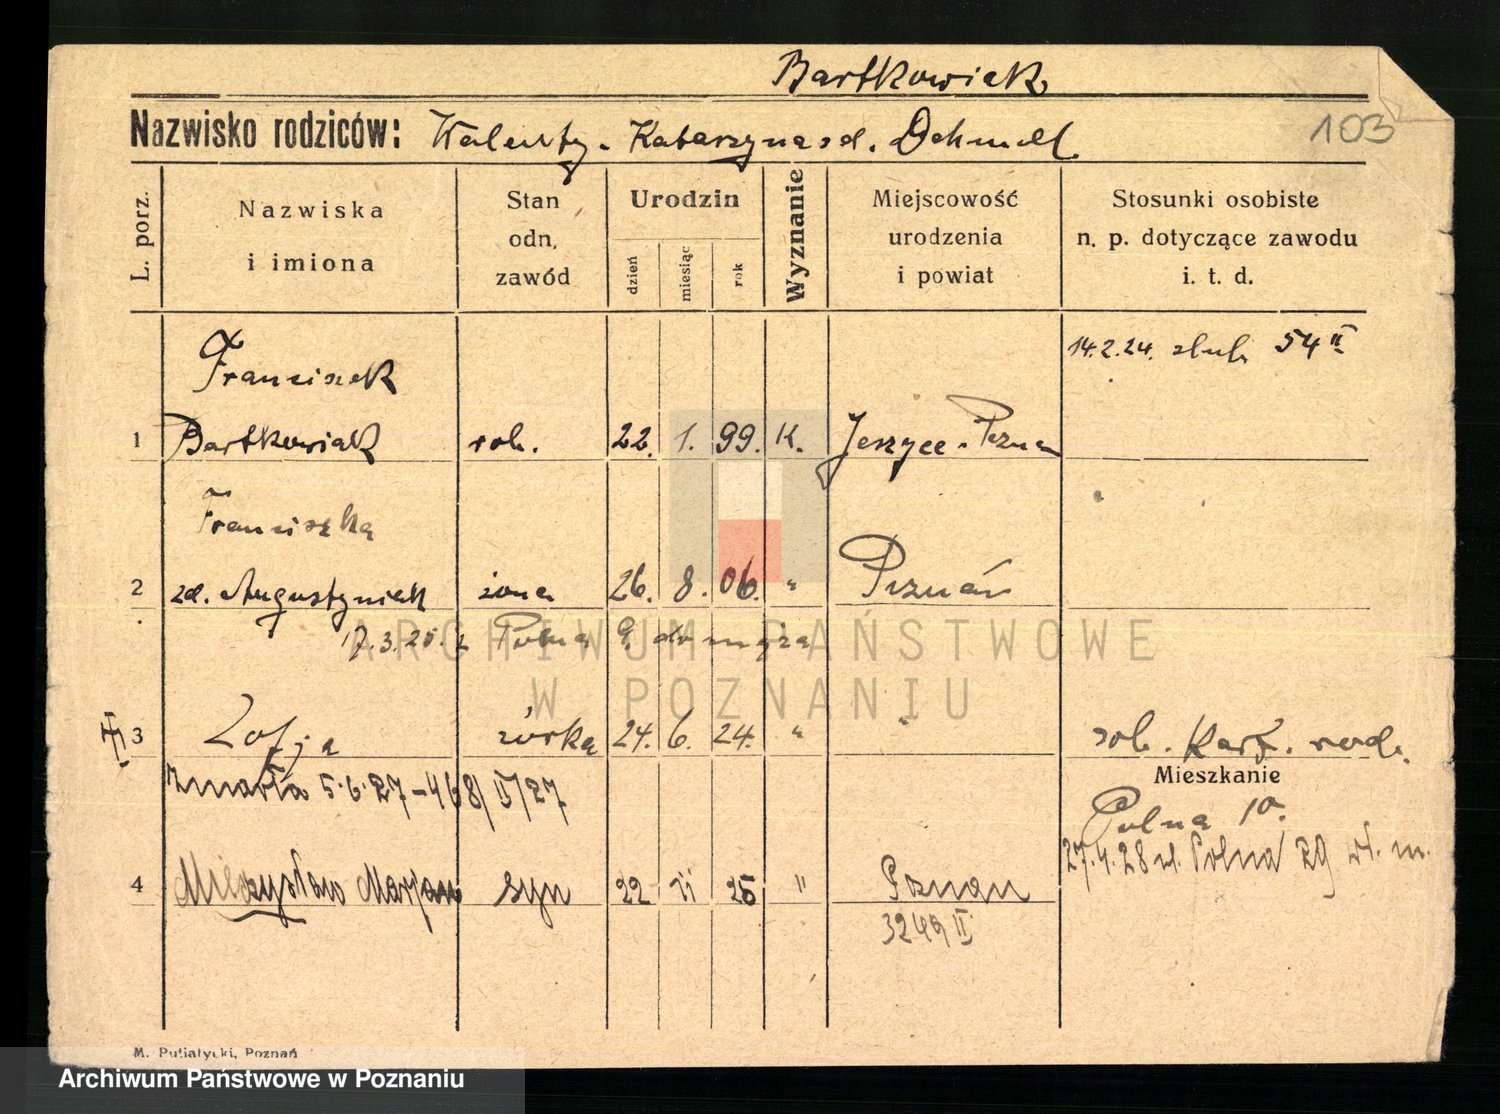 Bartkowiak
103
Nazwisko rodziców: Walenty - Katarzyna zd.
L. porz.
Nazwiska
i imiona
Stan
odn.
zawód
Urodzin
dzień
miesiąc
rok
Wyznanie
Miejscowość
urodzenia
i powiat
Stosunki osobiste
n. p. dotyczące zawodu
i. t. d.
14.2.24. ślub 54 II
Franciszek
1 Bartkowiak rob. 22. 1. 99. K. Jeszyce - Pozna
Franciszka
2 zd. Augustyniak żona 26. 8. 06. " Poznań
17.3.25. z Polna 9. do męża
3 Zofja córka 24. 6. 24. " " rob.
Mieszkanie
zmarła 5.6.27 - 468/II/27
Polna 10.
27.4.28 ul. Polna 29
4 Mieczysław Marjan syn 22 II 25 " Poznań
3249 II
M. Putiatycki, Poznań
ARCHIWUM PAŃSTWOWE
W POZNANIU
Archiwum Państwowe w Poznaniu